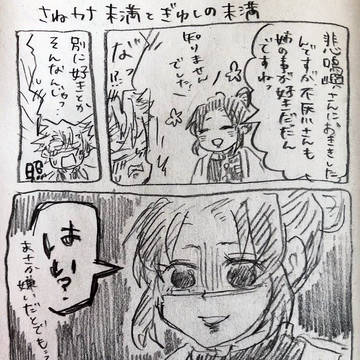 さねカナ未満とぎゆしの未満
悲鳴嶼さんにおききした
んですが不死川さんも
姉の事が好きだったん
ですね?
知りません
でした!
なっ…!
別に好きとか
そんなんじゃ?
照
はい?
まさか嫌いだとでも…?